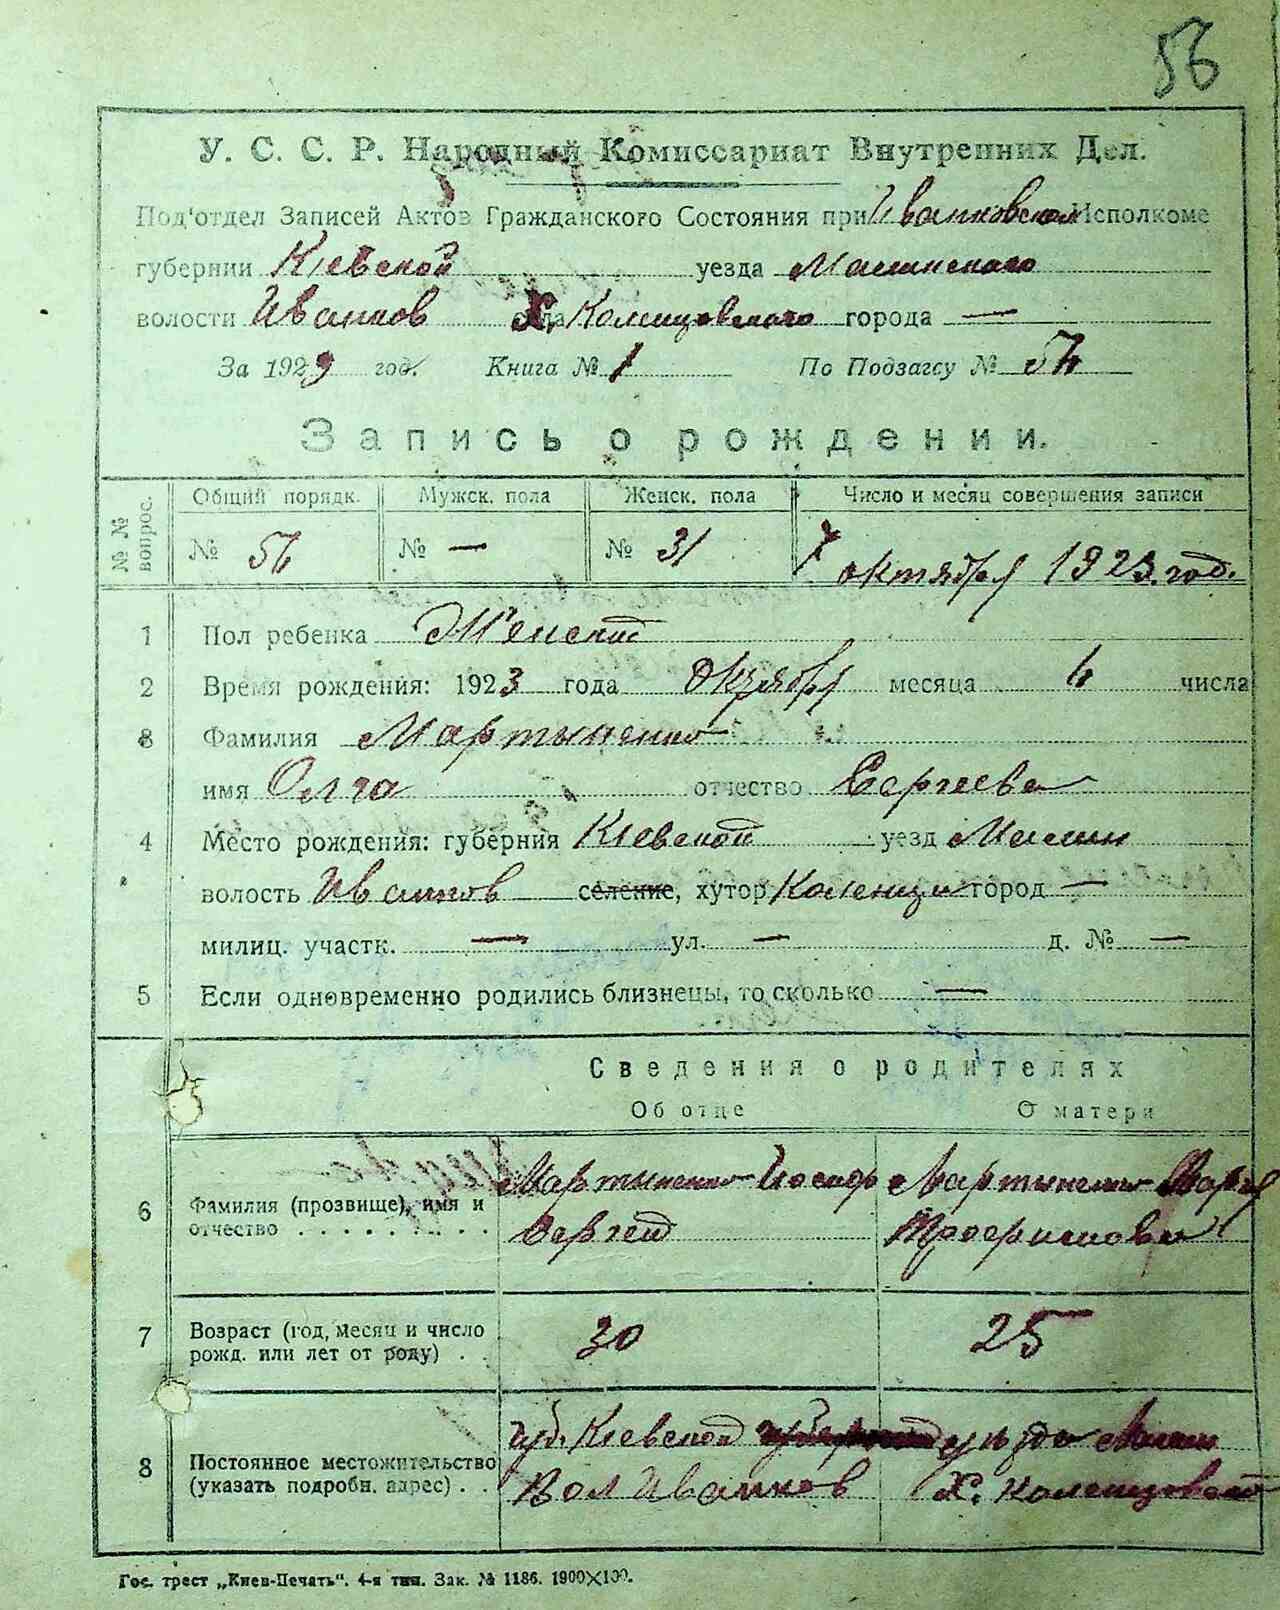 56
У. С. С. Р. Народный Комиссариат Внутренних Дел.
Под'отдел Записей Актов Гражданского Состояния при Иванковском Исполкоме
губернии Кіевской уезда Малинского
волости Иванков Х. Коленцовского города —
За 1923 год. Книга № 1 По Подзагсу № 56
Запись о рождении.
№ № вопрос. Общий порядк. Мужск. пола Женск. пола Число и месяц совершения записи
№ 56 № — № 31 7 октября 1923. год.
1 Пол ребенка Женский
2 Время рождения: 1923 года Октября месяца 6 числа
3 Фамилия Мартыненко
имя Олга отчество Сергеева
4 Место рождения: губерния Кіевской уезд Малин
волость Иванков селение, хутор Коленци город —
милиц. участк. — ул. — д. № —
5 Если одновременно родились близнецы, то сколько —
Сведения о родителях
Об отце О матери
6 Фамилия (прозвище), имя и отчество . . . . . . . . .
Мартыненко Иосиф Сергей
Мартыненко Мария Трофимовна
7 Возраст (год, месяц и число рожд. или лет от роду) . .
30 25
8 Постоянное местожительство (указать подробн. адрес) . .
губ. Кіевской уезда Малин
Вол Иванков Х. Коленцовской
Гос. трест „Киев-Печать“. 4-я тип. Зак. № 1186. 1900×100.